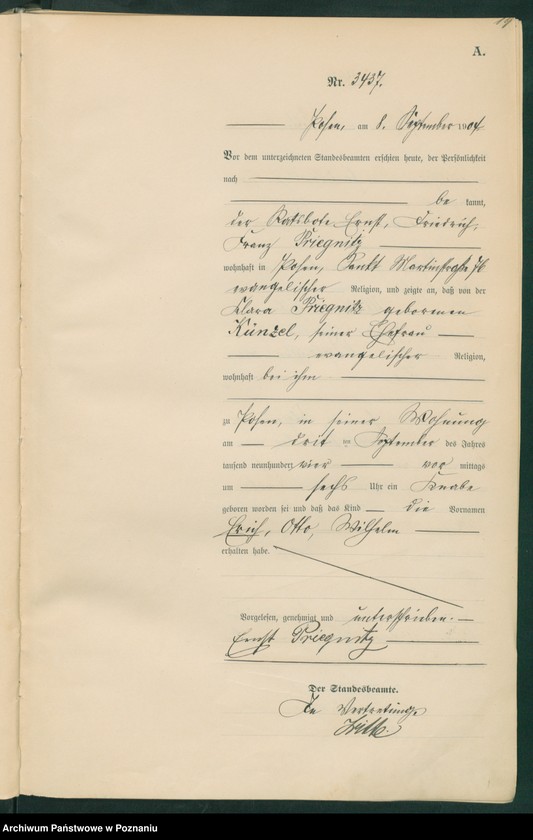 19
A.
Nr. 3437.
Posen, am 8. September 1904
Vor dem unterzeichneten Standesbeamten erschien heute, der Persönlichkeit
nach
be kannt,
der Ratsbote Ernst, Friedrich,
Franz Priegnitz
wohnhaft in Posen, Sankt Martinstraße 76
evangelischer Religion, und zeigte an, daß von der
Klara Priegnitz geborenen
Künzel, seiner Ehefrau
evangelischer Religion,
wohnhaft bei ihm
zu Posen, in seiner Wohnung
am drit ten September des Jahres
tausend neunhundert vier vor mittags
um sechs Uhr ein Knabe
geboren worden sei und daß das Kind die Vornamen
Erich, Otto, Wilhelm
erhalten habe.
Vorgelesen, genehmigt und unterschrieben.
Ernst Priegnitz
Der Standesbeamte.
In Vertretung
Archiwum Państwowe w Poznaniu